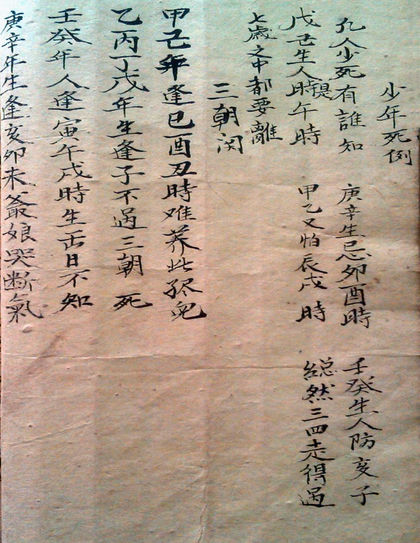 少年死例
凡人少死有誰知 庚辛生忌卯酉時 壬癸生人防亥子
戊己生人時提午時 甲乙又怕辰戌時 縂然三四走得過
七歲之中都要離
三朝関
甲己年逢巳酉丑時难养此孩兒
乙丙丁戊年生逢子不過三朝死
壬癸年人逢寅午戌時生五日不知
庚辛年生逢亥卯未爺娘哭断氣